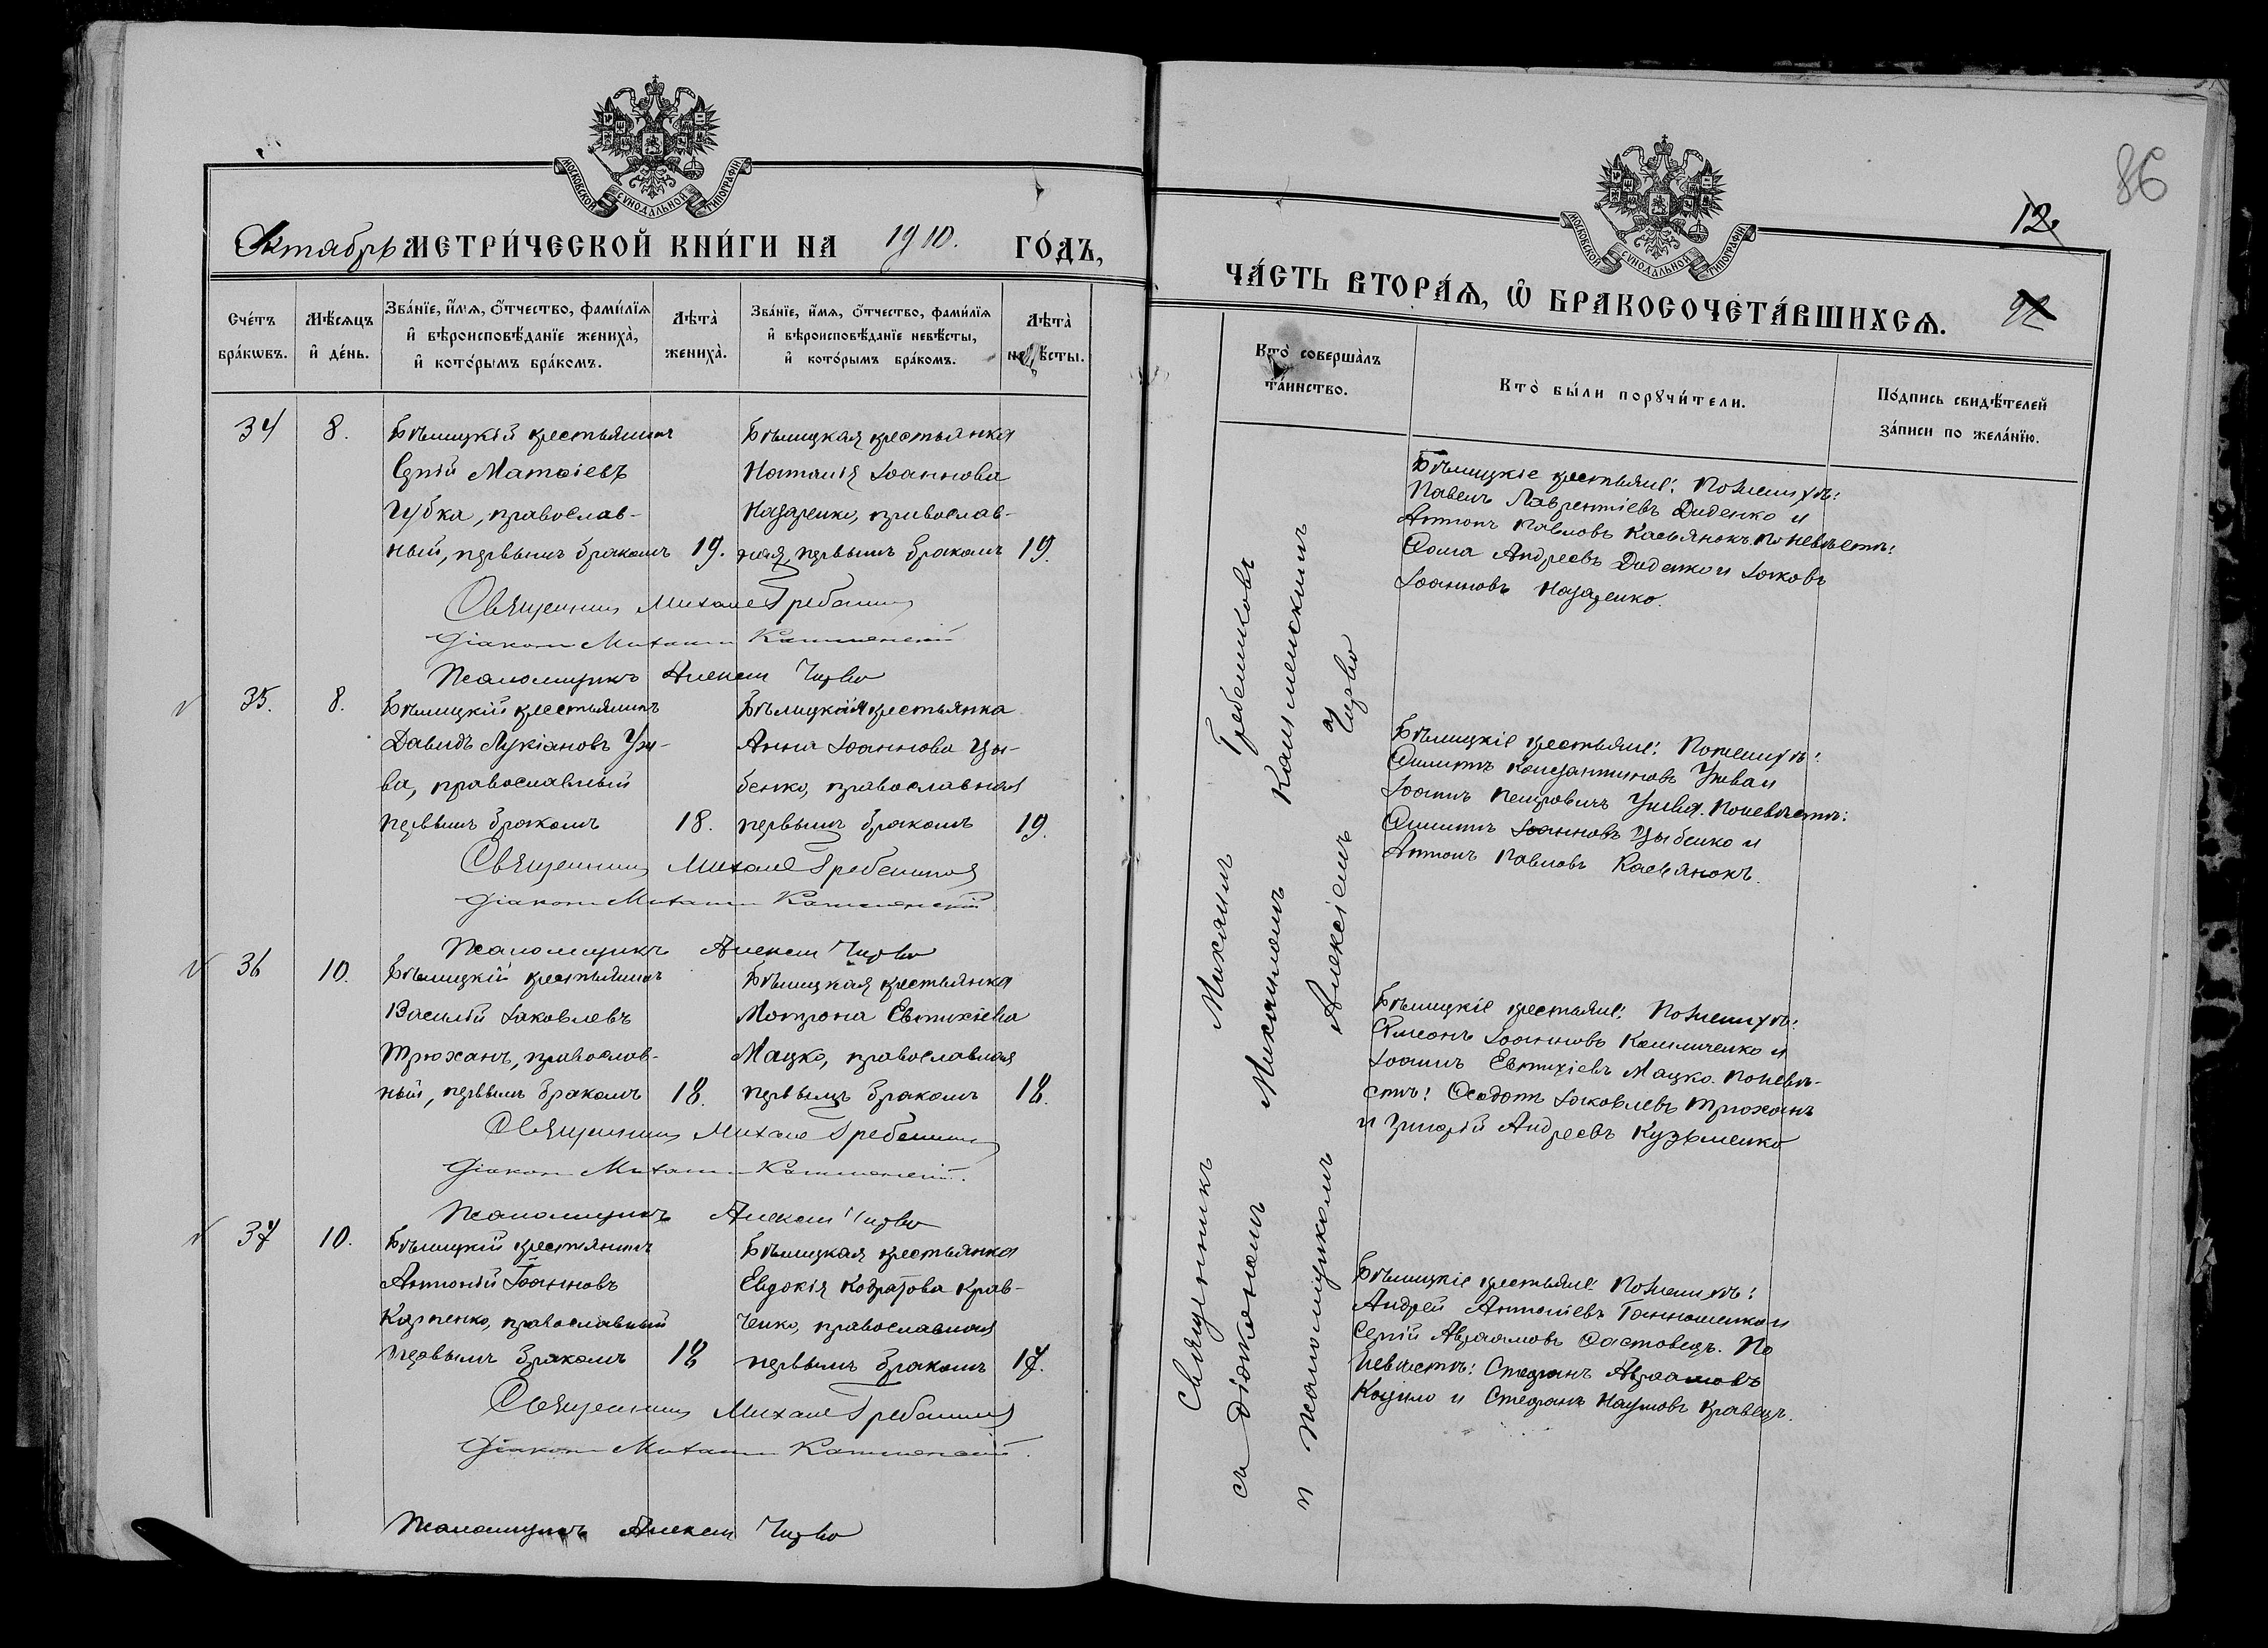 МОСКОВСКОЙ СѴНОДАЛЬНОЙ ТИПОГРАФІИ
Октябрь МЕТРИ́ЧЕСКОЙ КНИ́ГИ НА 1910. ГО́ДЪ,
Сче́тъ бра́кѡвъ.
Мѣ́сяцъ и҆ де́нь.
Зва́нїе, и҆́мя, ѻ҆́тчество, фами́лїя и҆ вѣроисповѣ́данїе жениха̀, и҆ кото́рымъ бра́комъ.
Лѣта̀ жениха̀.
Зва́нїе, и҆́мя, ѻ҆́тчество, фами́лїя и҆ вѣроисповѣ́данїе невѣ́сты, и҆ кото́рымъ бра́комъ.
Лѣта̀ невѣ́сты.
34 8.
Бѣлицкій крестьянинъ
Сергій Матѳіевъ
Губка, православ-
ный, первымъ бракомъ 19.
Бѣлицкая крестьянка
Наталія Іоаннова
Назаренко, православ-
ная, первымъ бракомъ 19.
Священникъ Михаилъ Гребенниковъ
Діаконъ Михаилъ Каменскій
Псаломщикъ Алексій Чирво
35. 8.
Бѣлицкій крестьянинъ
Давидъ Лукіановъ Ужв-
ва, православный
первымъ бракомъ 18.
Бѣлицкая крестьянка
Анна Іоаннова Цы-
бенко, православная
первымъ бракомъ 19.
Священникъ Михаилъ Гребенниковъ
Діаконъ Михаилъ Каменскій
Псаломщикъ Алексій Чирво
36 10.
Бѣлицкій крестьянинъ
Василій Іаковлевъ
Трюханъ, православ-
ный, первымъ бракомъ 18.
Бѣлицкая крестьянка
Мотрона Евтихіева
Мацко, православная
первымъ бракомъ 18.
Священникъ Михаилъ Гребенниковъ
Діаконъ Михаилъ Каменскій.
Псаломщикъ Алексій Чирво
37 10.
Бѣлицкій крестянинъ
Антоній Іоанновъ
Карпенко, православный
первымъ бракомъ 18
Бѣлицкая крестьянка
Евдокія Кодратова Крав-
ченко, православная
первымъ бракомъ 17.
Священникъ Михаилъ Гребенниковъ
Діаконъ Михаилъ Каменскій.
Псаломщикъ Алексій Чирво
86
12.
МОСКОВСКОЙ СѴНОДАЛЬНОЙ ТИПОГРАФІИ
ЧА́СТЬ ВТОРА́Ѧ, Ѽ БРАКОСОЧЕТА́ВШИХСѦ.
Кто̀ соверша̀лъ та́инство.
Кто̀ бы́ли порꙋчи́тели.
По́дпись свидѣ́телей за́писи по жела́нїю.
Священникъ Михаилъ Гребенниковъ
съ діакономъ Михаиломъ Каменскимъ
и псаломщикомъ Алексіемъ Чирво
Бѣлицкіе крестьяне: По женихѣ:
Павелъ Лаврентіевъ Диденко и
Антонъ Павловъ Касьянокъ. По невѣстѣ:
Ѳома Андреевъ Диденко и Іаковъ
Іоанновъ Назаренко.
Бѣлицкіе крестьяне: По женихѣ:
Филиппъ Константиновъ Ужва и
Іоаннъ Петровичъ Ужва. По невѣстѣ:
Филиппъ Іоанновъ Цыбенко и
Антонъ Павловъ Касьянокъ.
Бѣлицкіе крестьяне: По женихѣ:
Симеонъ Іоанновъ Клименко и
Іоаннъ Евтихіевъ Мацко. По невѣ-
стѣ: Ѳеодотъ Іаковлевъ Трюханъ
и Григорій Андреевъ Кузьменко
Бѣлицкіе крестьяне: По женихѣ:
Андрей Антоніевъ и
Сергій Авраамовъ Фастовецъ. По
невѣстѣ: Стефанъ Авраамовъ
Коцило и Стефанъ Наумовъ Кравецъ.